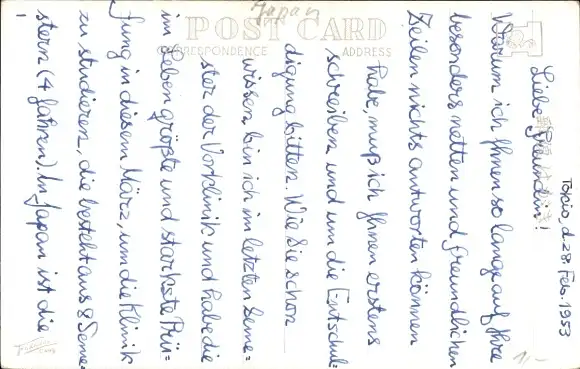 Japan
POST CARD
CORRESPONDENCE
ADDRESS
Tokio, d. 28. Feb. 1953
Liebe Freundin!
Warum ich Ihnen so lange auf Ihre
besonders netten und freundlichen
Zeilen nichts antworten können
habe, muß ich Ihnen erstens
schreiben und um die Entschul=
digung bitten. Wie Sie schon
wissen bin ich im letzten Seme=
ster der Vorklinik und habe die
im Leben größte und starkste Prü=
fung in diesem März, um die Klinik
zu studieren, die besteht aus 8 Seme-
stern (4 Jahren). In Japan ist die
1/-